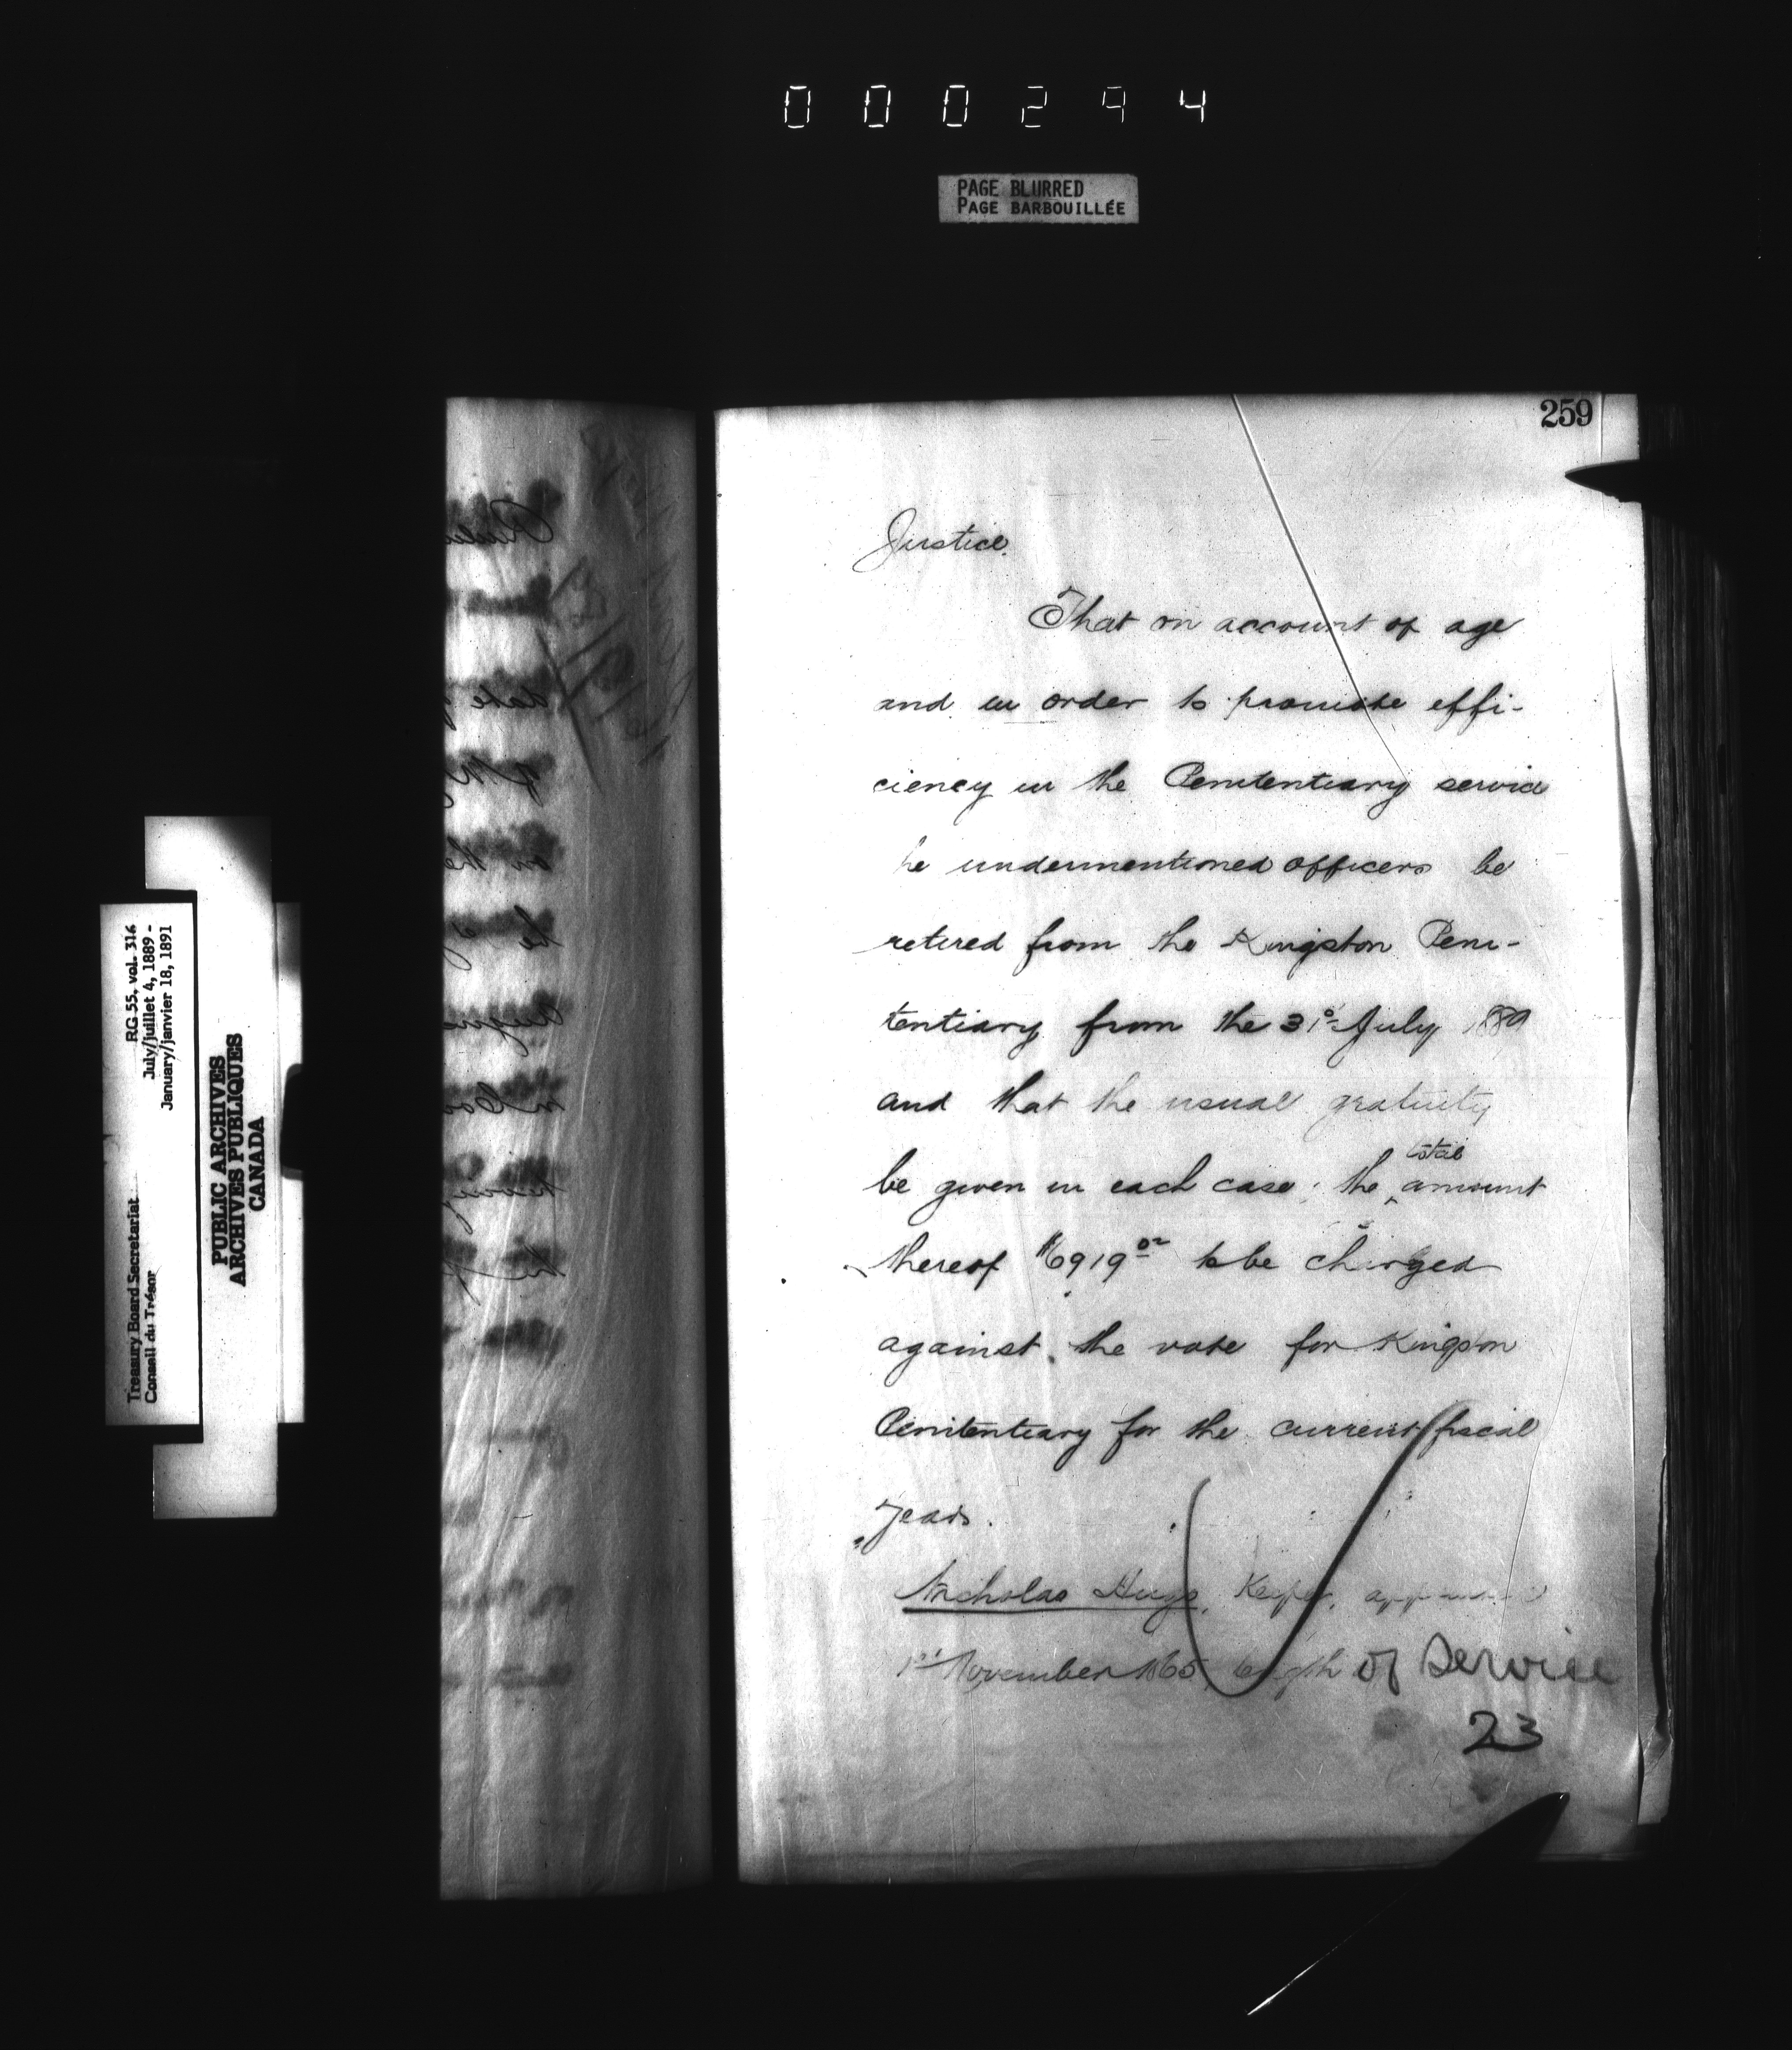 000294
PAGE BLURRED
PAGE BARBOUILLÉE
259
Justice.
That on account of age
and in order to promote effi-
ciency in the Penitentiary service
he undermentioned officers be
retired from the Kingston Peni-
tentiary from the 31st July 1889
and that the usual gratuity
be given in each case; the total amount
thereof $6919 to be charged
against the vote for Kingston
Penitentiary for the current fiscal
years.
Nicholas Hugo, Keeper, appointed
1st November 1865, length of service
23
RG 55, vol. 316
July/juillet 4, 1889 -
January/janvier 18, 1891
Treasury Board Secretariat
Conseil du Trésor
PUBLIC ARCHIVES
ARCHIVES PUBLIQUES
CANADA